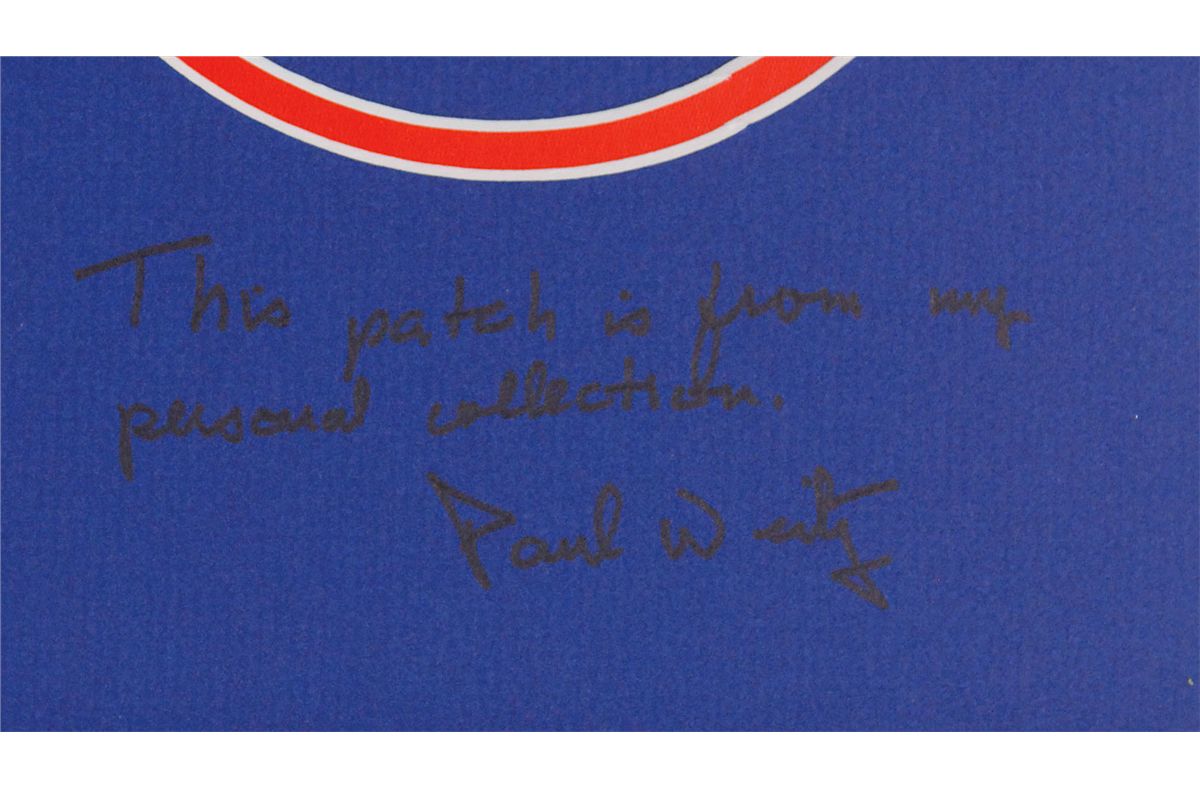 This patch is from my
personal collection.
Paul Weitz